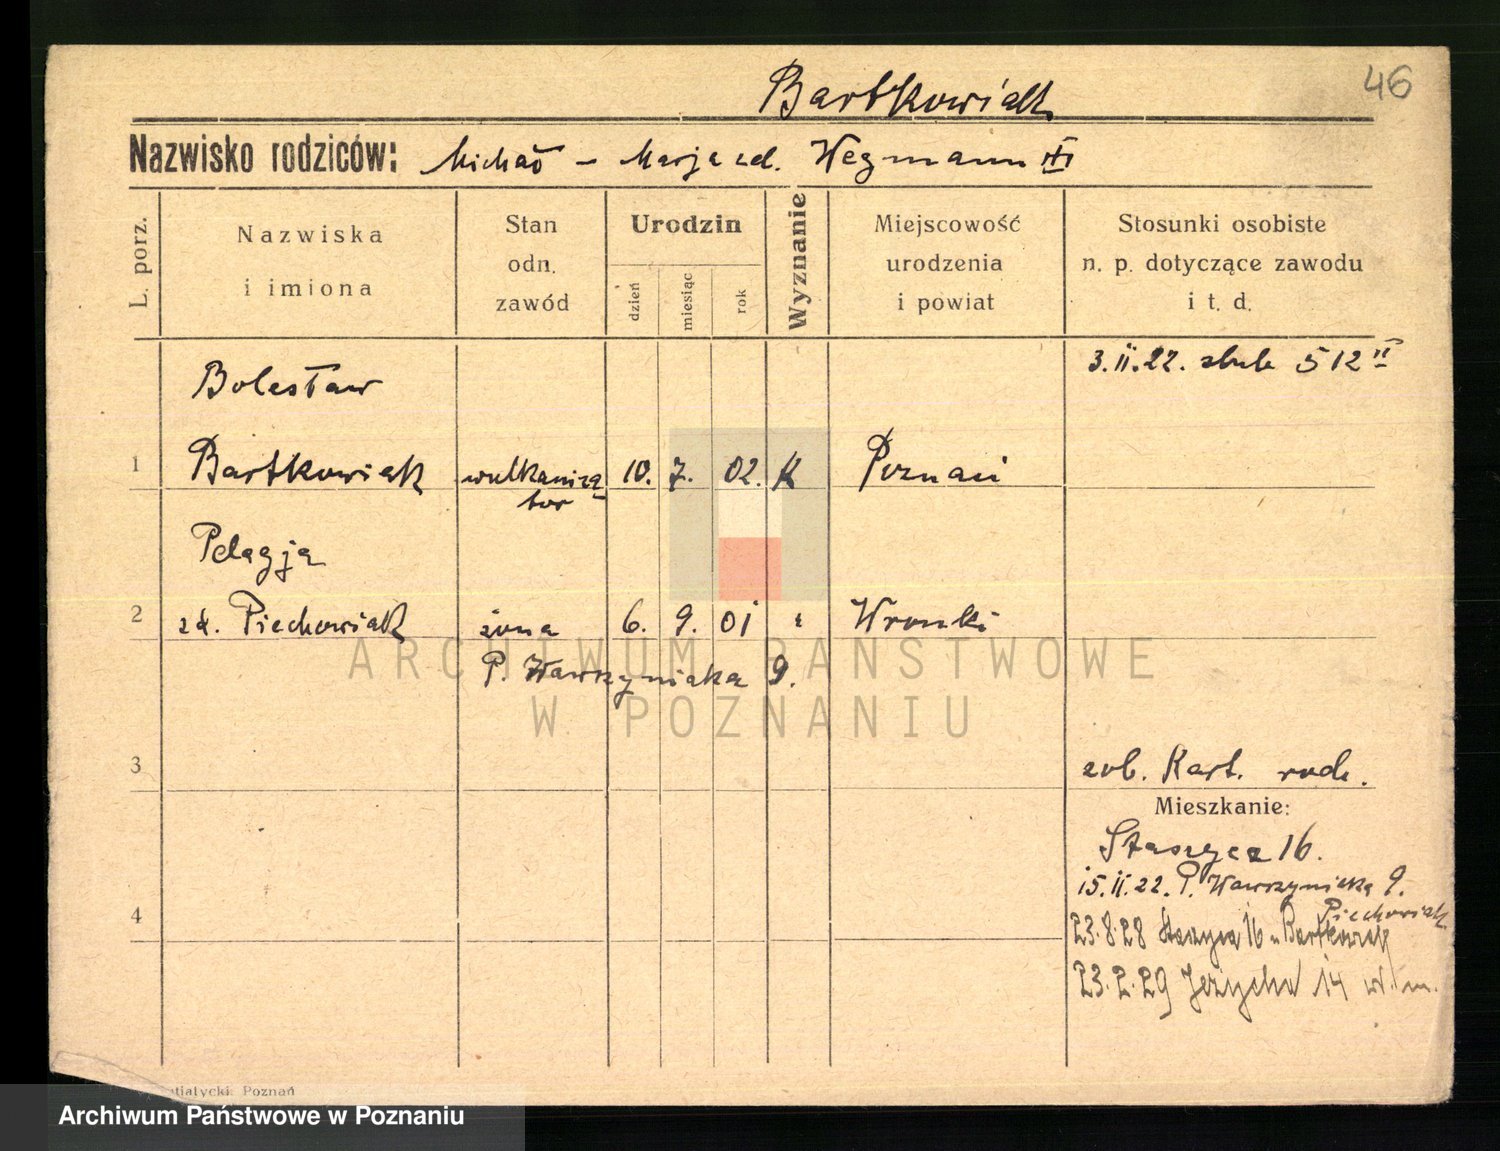 46
Bartkowiak
Nazwisko rodziców: Michał – Marja zd. Wegmann III
L. porz.
Nazwiska i imiona
Stan odn. zawód
Urodzin
dzień
miesiąc
rok
Wyznanie
Miejscowość urodzenia i powiat
Stosunki osobiste n. p. dotyczące zawodu i t. d.
3.II.22. 512 II
Bolesław
1 Bartkowiak wulkanizą- 10. 7. 02. K Poznań
tor
Pelagja
2 zd. Piechowiak żona 6. 9. 01 " Wronki
P. Wawrzyniaka 9.
ARCHIWUM PAŃSTWOWE
W POZNANIU
3
zob. Kart. rodz.
Mieszkanie:
Staszyca 16.
15.II.22. P. Wawrzyniaka 9.
Piechowiak
4
23.8.28 Staszyca 16 u Bartkowiak
23.2.29 Jeżycka 14 w.m.
Poznań
Archiwum Państwowe w Poznaniu